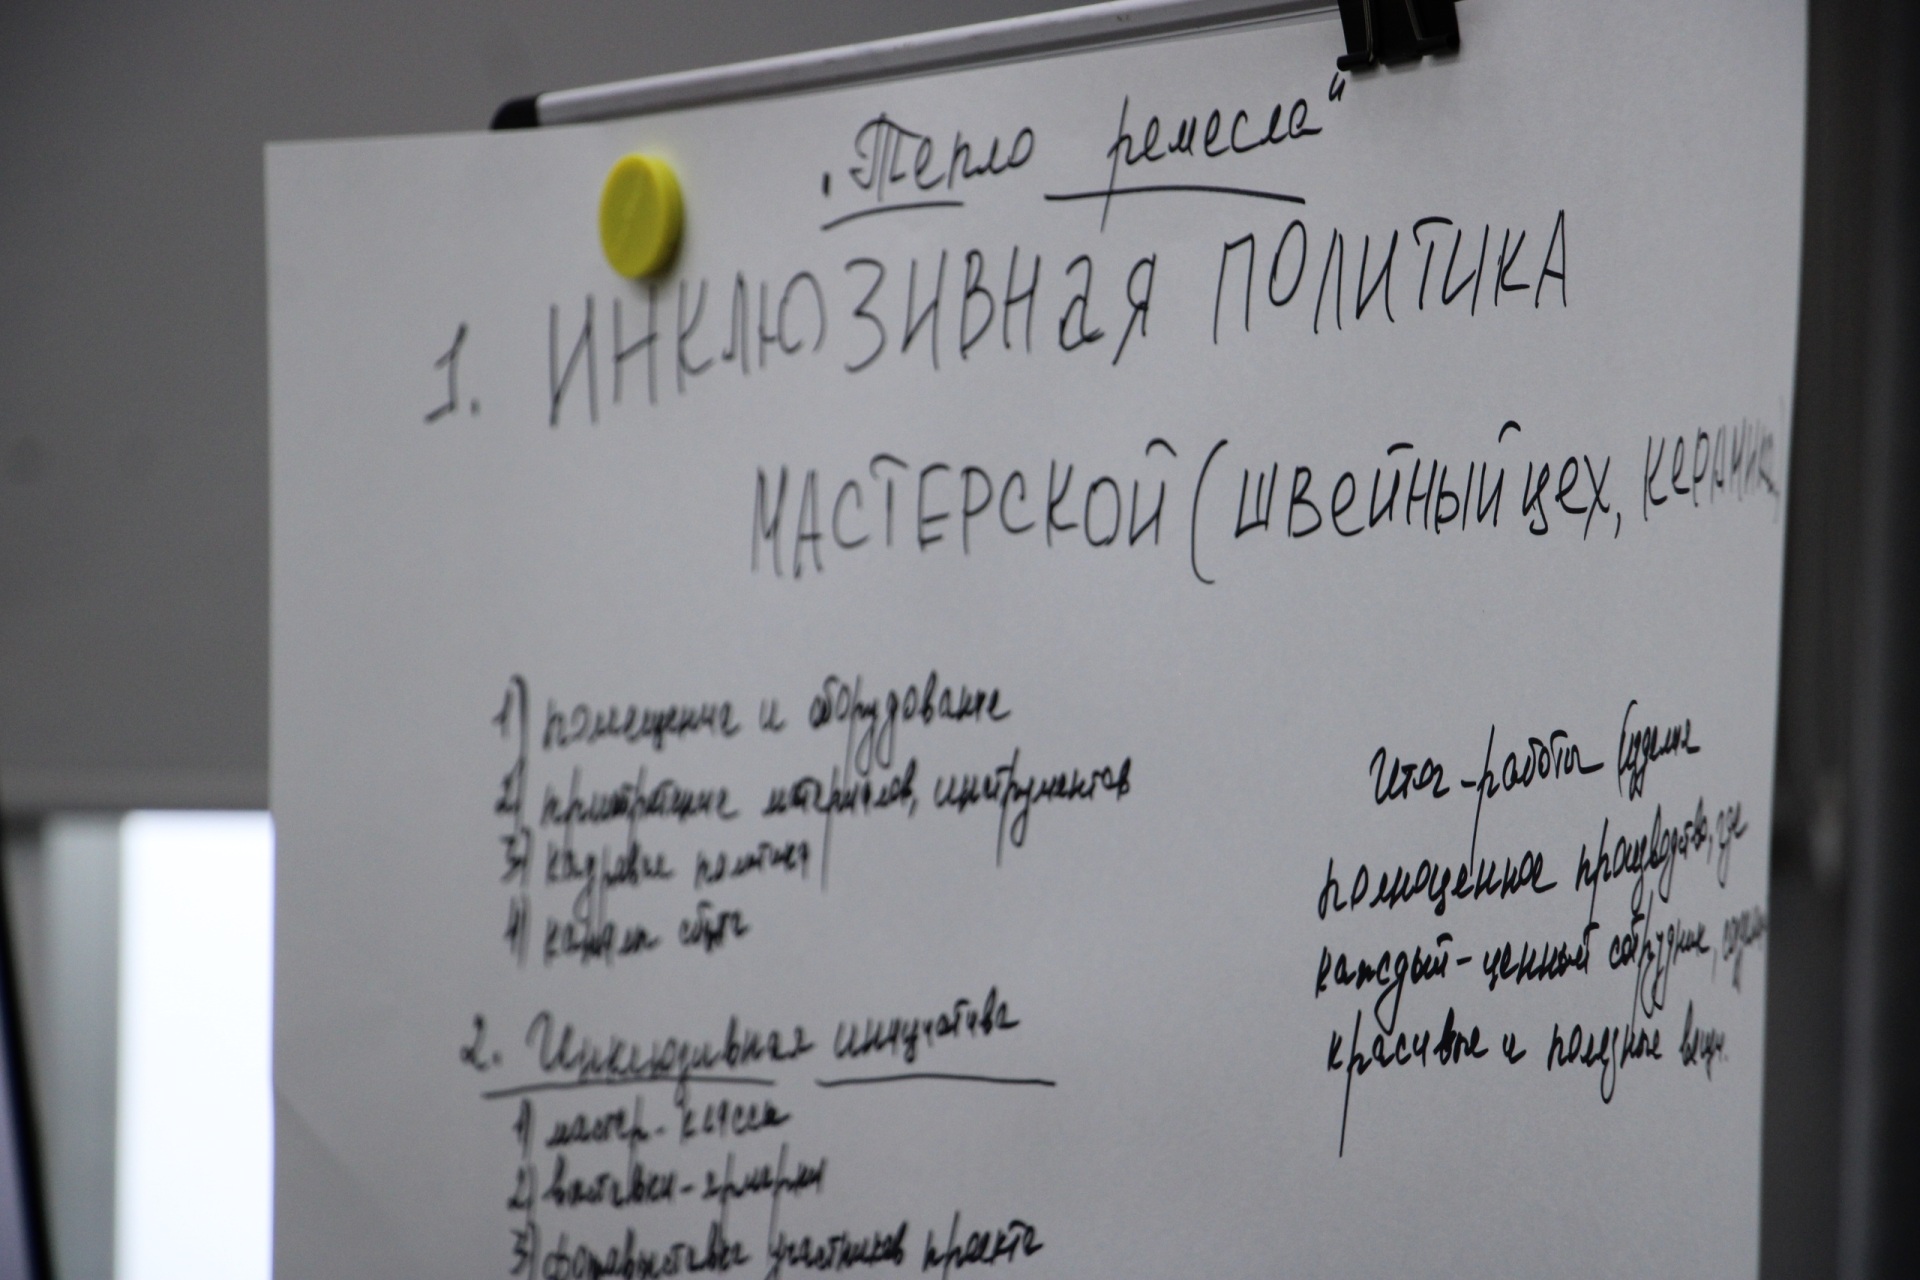 „Тепло ремесла"
1. ИНКЛЮЗИВНАЯ ПОЛИТИКА
МАСТЕРСКОЙ (ШВЕЙНЫЙ ЦЕХ, КЕРАМИКА,
1) помещение и оборудование
2) приобретение материалов, инструментов
3) кадровая политика
4) каналы сбыта
2. Инклюзивная инициатива
1) мастер-классы
2) выставки-ярмарки
3) фотовыставка участников проекта
Итог-работы (изделия
полноценное производство, где
каждый - ценный сотрудник,
красивые и полезные вещи.